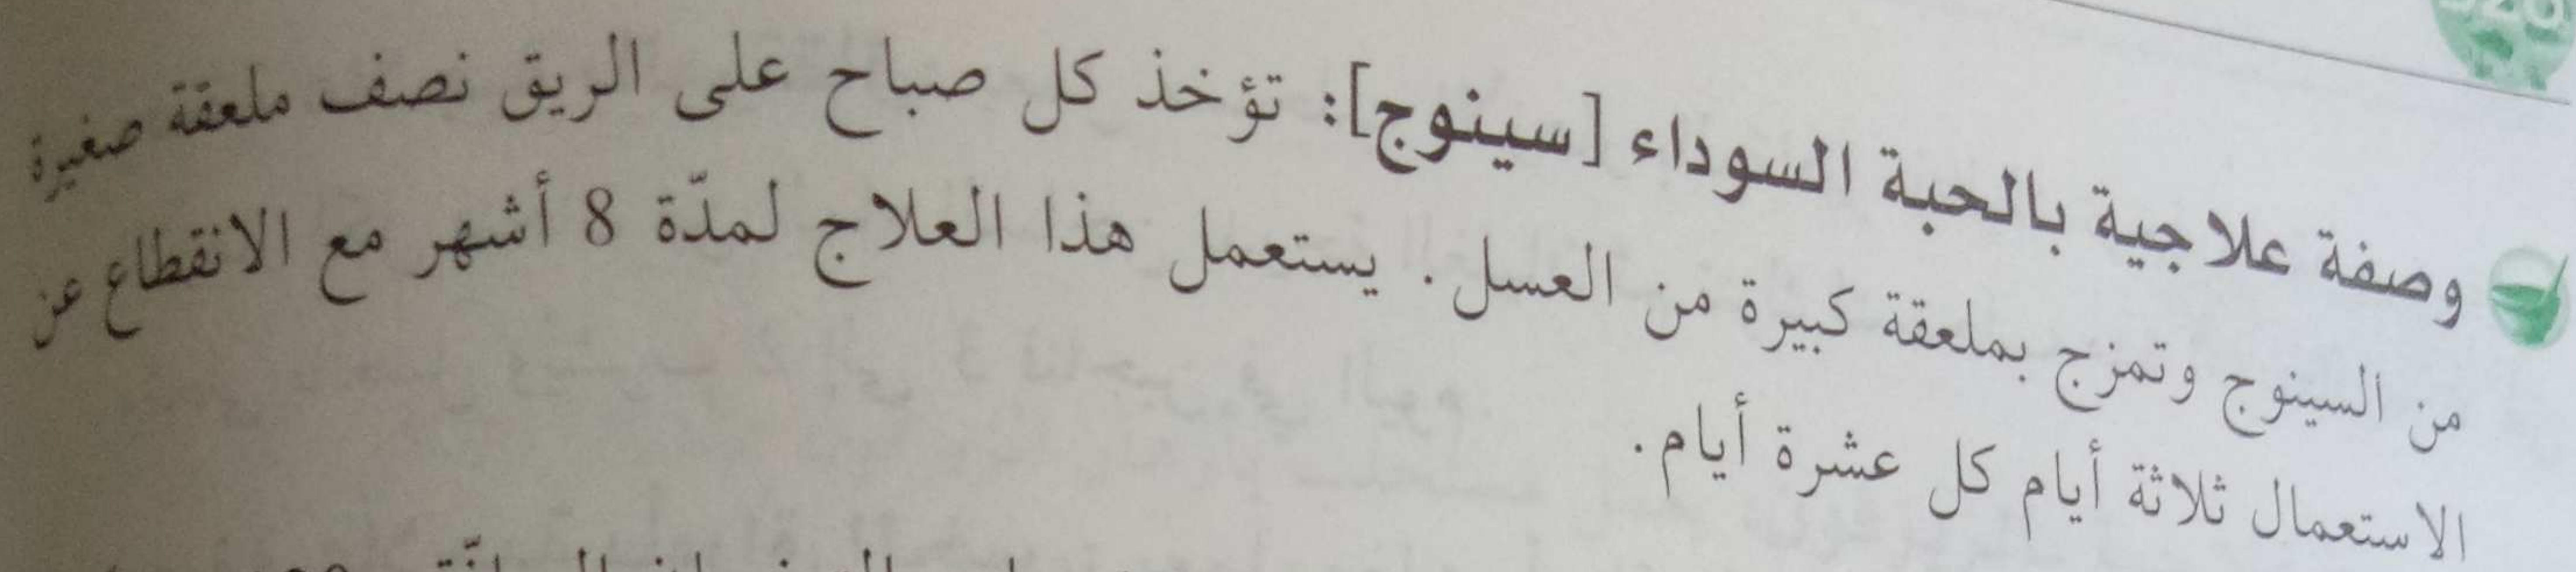 وصفة علاجية بالحبة السوداء [سينوج]: تؤخذ كل صباح على الريق نصف ملعقة صغيرة
من السينوج وتمزج بملعقة كبيرة من العسل. يستعمل هذا العلاج لمدّة 8 أشهر مع الانقطاع عن
الاستعمال ثلاثة أيام كل عشرة أيام.